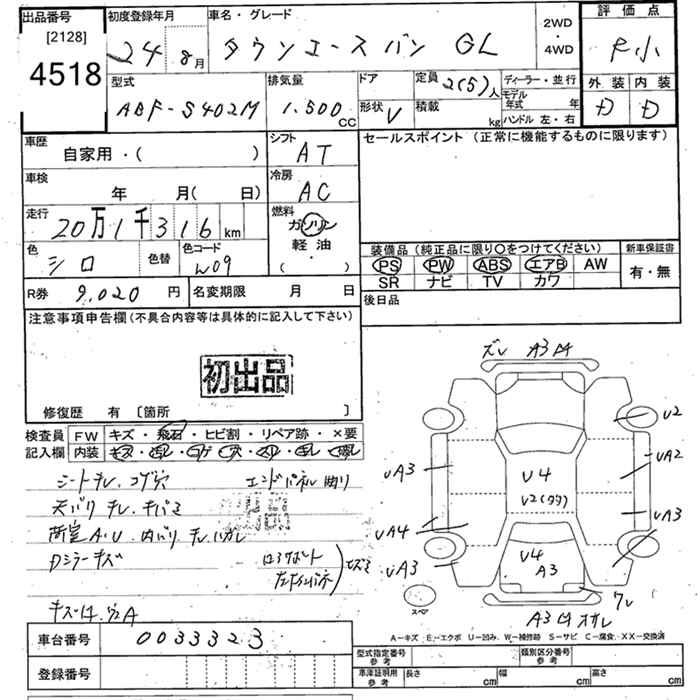 出品番号 [2128] 4518
初度登録年月 24年 8月
車名・グレード タウンエースバン GL
2WD・4WD
評価点 R小
外装 D 内装 D
型式 ABF-S402M
排気量 1.500 CC
ドア 形状 V
定員 2(5)人 積載 kg
ディーラー・並行
モデル年式 年
ハンドル 左・右
車歴 自家用・( )
シフト AT
セールスポイント(正常に機能するものに限ります)
車検 年 月(日)
冷房 AC
走行 20万1千316km
燃料 ガソリン・軽油・( )
色 シロ 色替 色コード W09
装備品(純正品に限り○をつけてください) 新車保証書
PS PW ABS エアB AW 有・無
SR ナビ TV カワ
R券 9,020円 名変期限 月 日
後日品
注意事項申告欄(不具合内容等は具体的に記入して下さい)
初出品
修復歴 有 [箇所 ]
検査員記入欄 FW キズ・飛石・ヒビ割・リペア跡・×要
内装
シートヨゴレ コゲ穴 エンドパネル曲り
天バリ
荷室A・U 内バリ
Dミラーキズ
ズレ A3
U2
UA3 UA2
U4
U2(タタ)
UA4 UA3
UA3 U4 A3
ワレ
スペア
A3
車台番号 0033323
A-キズ E-エクボ U-凹み、W-補修跡 S-サビ C-腐食、XX-交換済
登録番号
型式指定番号 参考 類別区分番号 参考
車庫証明用 参考 長さ cm 幅 cm 高さ cm